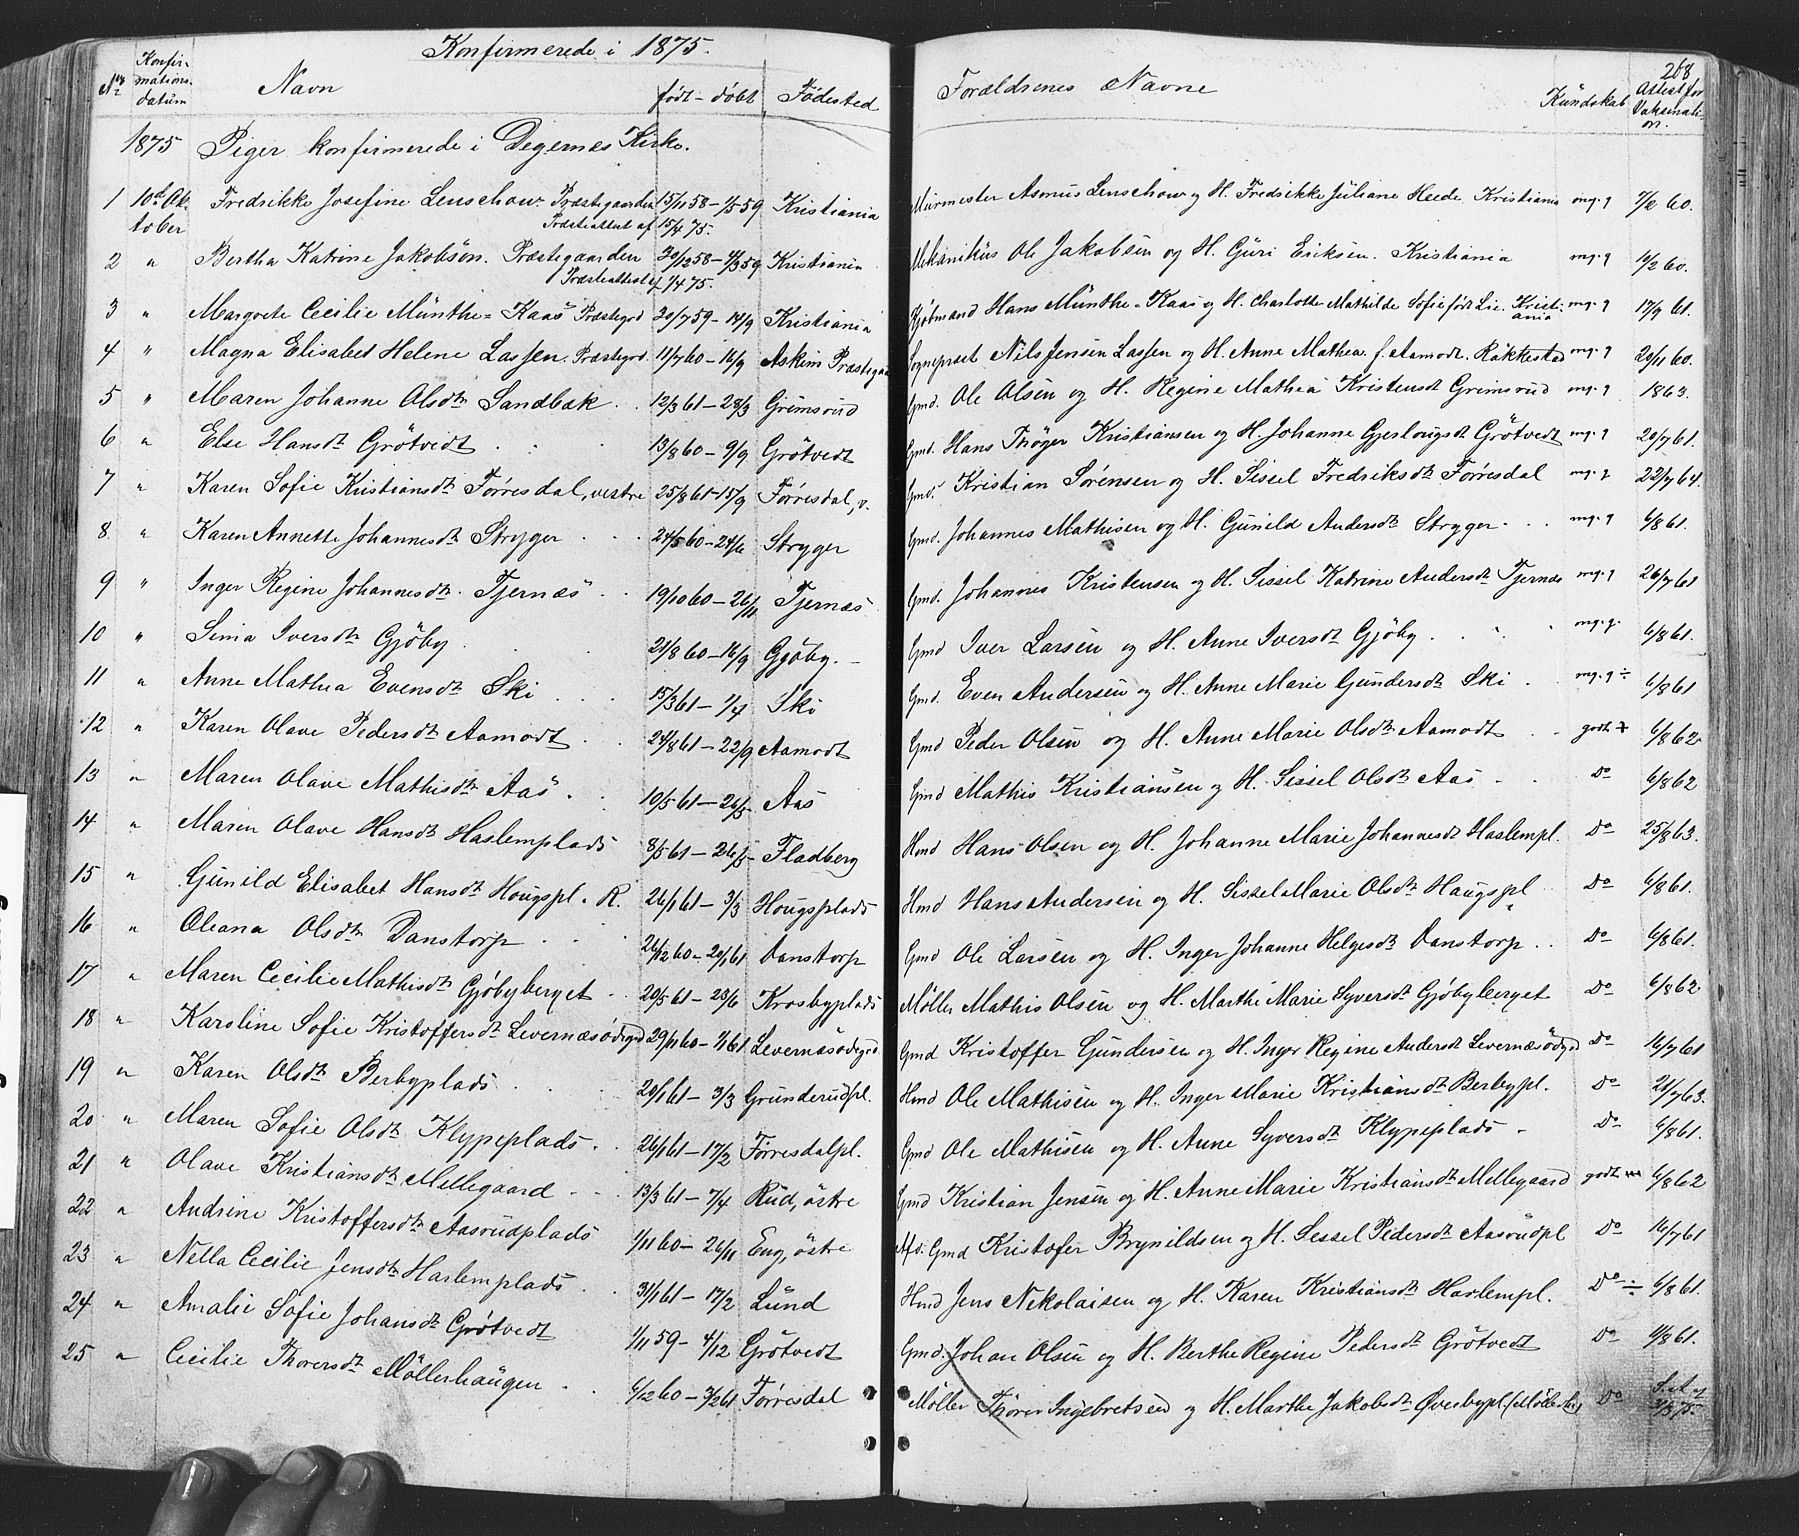 Konfirmerede i 1875.
No Konfirmations datum Navn født – døbt Födested Forældrenes Navne Kundskab 208 Attest for Vaksination.
1875 Piger konfirmerede i Degernes Kirke.
1 10de Oktober Fredrikke Josefine Lenschow. Præstegaarden 15/11 58 – 1/5 59 Kristiania Murmester Asmus Lenschow og H. Fredrikke Juliane Heede Kristiania mg. g 7/2 60.
Præsteattest af 15/4 75.
2 " Bertha Katrine Jakobsøn. Præstegaarden 30/12 58 – 4/3 59 Kristiania Mekanikus Ole Jakobsen og H. Guri Eriksen. Kristiania mg. g 10/2 60.
Præsteattest af 1/4 75.
3 " Margrete Cecilie Münthe-Kaas Præstegrd 20/7 59 – 14/9 Kristiania Kjöbmand Hans Münthe-Kaas og H. Charlotte Mathilde Sofie født Lie. Kristiania mg. g 17/9 61.
4 " Magna Elisabet Helene Lassen. Præstegrd. 11/7 60 – 16/9 Askim Præstegaa Sogneprest Nils Jensen Lassen og H. Anne Mathea f. Aamodt. Rakkestad mg. g 20/11 60.
5 " Maren Johanne Olsdtr Sandbæk 12/3 61 – 28/3 Grimsrud Gmd. Ole Olsen og H. Regine Mathea Kristensdtr Grimsrud mg. g 1863.
6 " Else Hansdtr Grötvedt 13/8 60 – 9/9 Grötvedt Gmd. Hans Thøger Kristiansen og H. Johanne Gjerlougsdtr Grötvedt mg. g 20/7 61.
7 " Karen Sofie Kristiansdtr Törresdal, vestre 25/8 61 – 15/9 Törresdal, v. Gmd. Kristian Sörensen og H. Sissel Fredriksdtr Törresdal mg. g 22/7 64.
8 " Karen Annette Johannesdtr Stryger 24/5 60 – 24/6 Stryger Gmd. Johannes Mathisen og H. Gunild Andersdtr Stryger mg. g 6/8 61.
9 " Inger Regine Johannesdtr. Tjernæs 19/10 60 – 26/11 Tjernæs Gmd. Johannes Kristensen og H. Sissel Katrine Andersdtr Tjernæs mg. g 26/7 61
10 " Sina Iversdtr Gjöby 21/8 60 – 16/9 Gjöby. Gmd Iver Larsen og H. Anne Iversdtr Gjöby mg. g. 6/8 61.
11 " Anne Mathea Evensdtr Ski 15/3 61 – 1/4 Ski Gmd. Even Andersen og H. Anne Marie Gundersdtr Ski mg. g ÷ 6/8 61
12 " Karen Olave Pedersdtr Aamodt 24/8 61 – 22/9 Aamodt Gmd Peder Olsen og H. Anne Marie Olsdtr Aamodt godt 6/8 62
13 " Maren Olave Mathisdtr Aas 10/5 61 – 26/5 Aas Gmd Mathis Kristiansen og H. Sissel Olsdtr Aas Do 6/8 62
14 " Maren Olave Hansdtr Haslemplads 8/5 61 – 26/5 Fladberg Hmd Hans Olsen og H. Johanne Marie Johannesdtr Haslempl. Do 25/8 63.
15 " Gunild Elisabet Hansdtr Hougspl. R. 26/1 61 – 3/3 Hougsplads Hmd Hans Andersen og H. Sissel Marie Olsdtr Haugspl Do 6/8 61.
16 " Oleana Olsdtr Danstorp 26/12 60 – 20/1 61 Danstorp Gmd Ole Larsen og H. Inger Johanne Helgesdtr Danstorp Do 6/8 61.
17 " Maren Cecilie Mathisdtr Gjöbyberget 20/5 61 – 23/6 Krosbyplads Möller Mathis Olsen og H. Marthe Marie Syversdtr Gjöbyberget Do 6/8 62
18 " Karoline Sofie Kristoffersdtr Levernæsödegrd 29/11 60 – 1/1 61 Levernæsödegrd Gmd Kristoffer Gundersen og H. Inger Regine Andersdtr Levernæsödgrd Do 16/7 61
19 " Karen Olsdtr Berbyplads 20/1 61 – 3/3 Grunderudpl. Hmd Ole Mathisen og H. Inger Marie Kristiansdtr Berbypl. Do 21/7 63.
20 " Maren Sofie Olsdtr Klypeplads 26/1 61 – 17/2 Törresdalpl. Gmd Ole Mathisen og H. Anne Syversdtr Klypeplads Do 6/8 61.
21 " Olave Kristiansdtr Mellegaard 13/3 61 – 7/4 Rud, östre Gmd Kristian Jensen og H. Anne Marie Kristiansdtr Mellegaard godt 6/8 62
22 " Andrine Kristoffersdtr Aasrudplads 1/11 60 – 26/11 Eng, östre Afs. Gmd Kristofer Brynildsen og H. Sessel Pedersdtr Aasrudpl Do 16/7 61
23 " Nella Cecilie Jensdtr Harlemplads 31/1 61 – 17/2 Lund Hmd Jens Nikolaisen og H. Karen Kristiansdtr Harlempl. Do ÷ 6/8 61.
24 " Amalie Sofie Johansdtr Grötvedt 1/11 59 – 4/12 Grötvedt Gmd. Johan Olsen og H. Berthe Regine Pedersdtr Grötvedt Do 6/8 61.
25 " Cecilie Thorersdtr Möllerhaugen 6/12 60 – 3/2 61 Törresdal Möller Thorer Ingebretsen og H. Marthe Jakobsdtr Øverbypl. Do